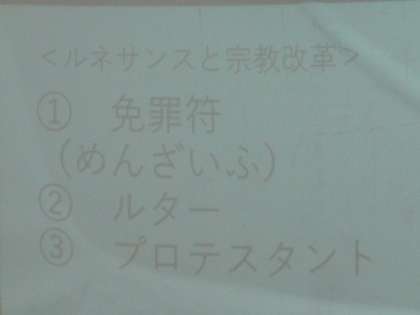 ＜ルネサンスと宗教改革＞
① 免罪符
（めんざいふ）
② ルター
③ プロテスタント